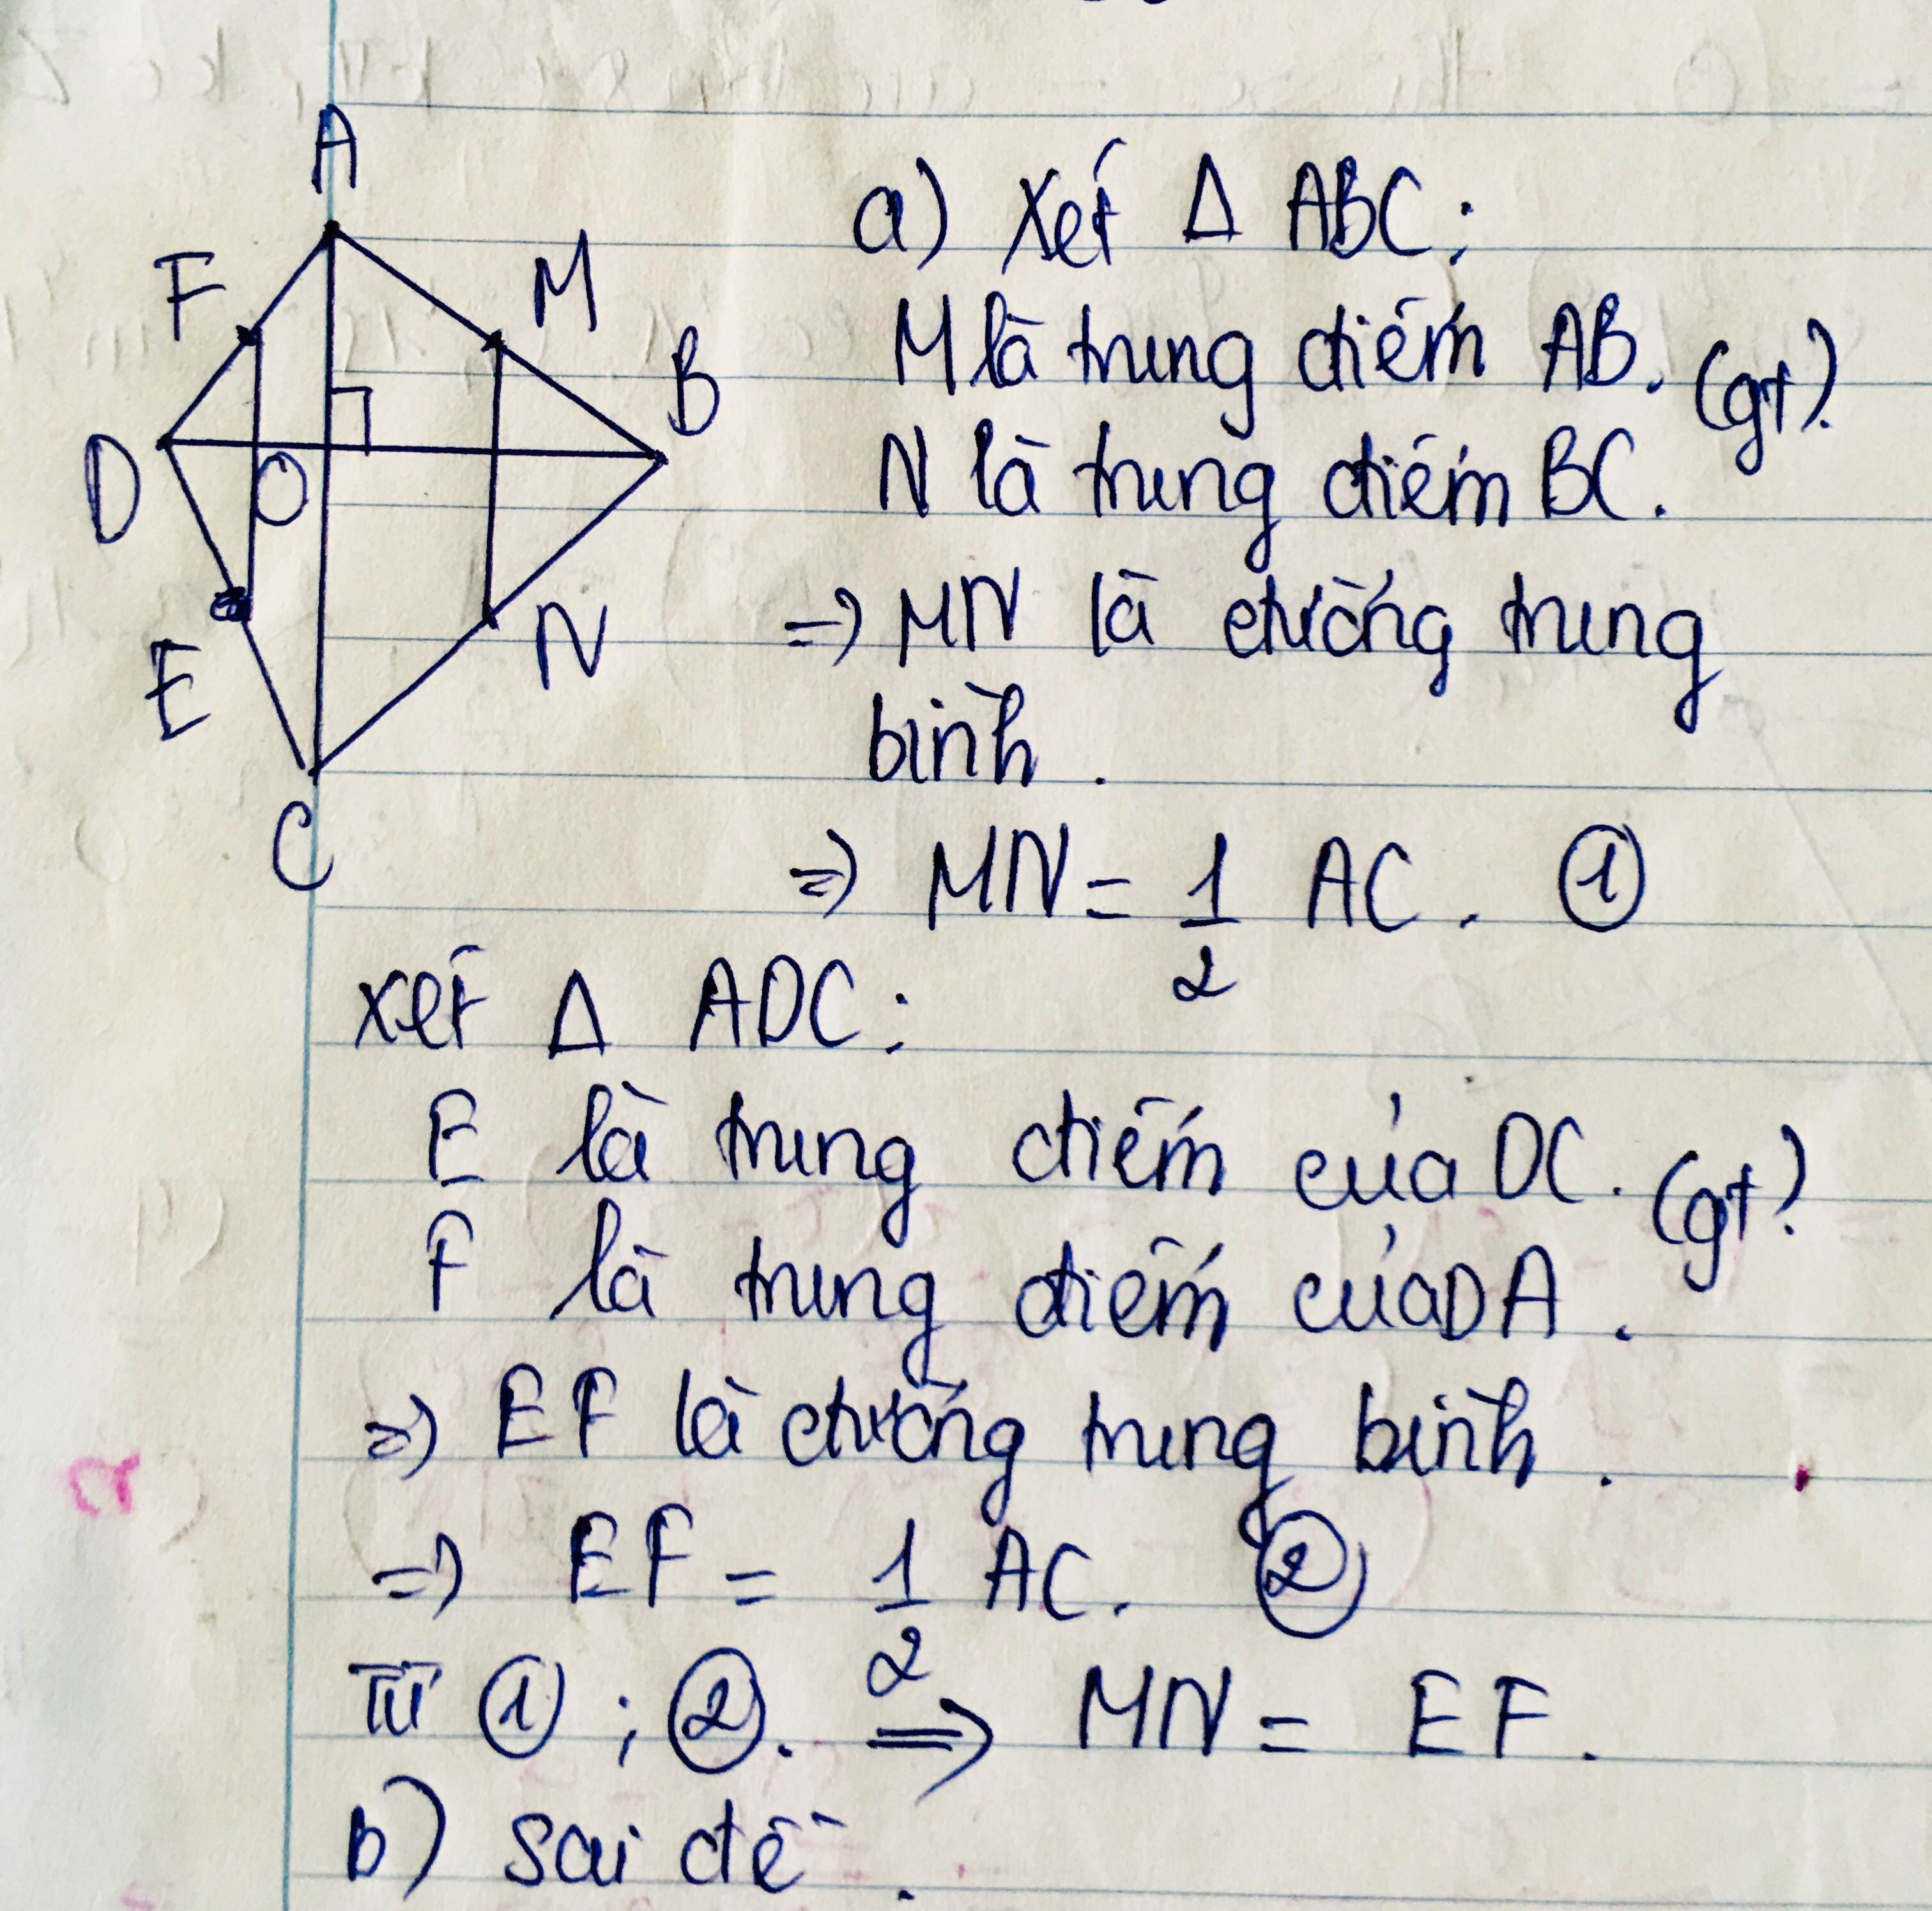 A
F
M
B
D
O
E
N
C
a) Xét Δ ABC:
M là trung điểm AB. (gt).
N là trung điểm BC.
=> MN là đường trung
bình.
=> MN = 1/2 AC. ①
Xét Δ ADC:
E là trung điểm của DC. (gt)
F là trung điểm của DA.
=> EF là đường trung bình.
=> EF = 1/2 AC. ②
Từ ① ; ②. => MN = EF.
b) sai đề.